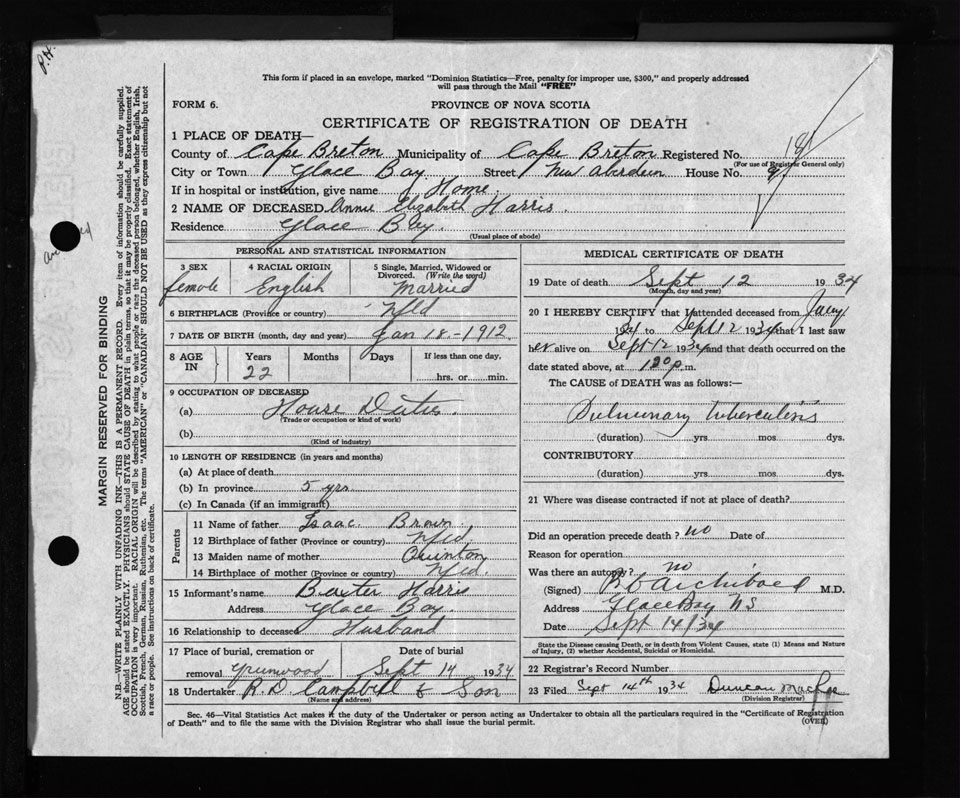 P.H.
This form if placed in an envelope, marked "Dominion Statistics—Free, penalty for improper use, $300," and properly addressed
will pass through the Mail "FREE"
FORM 6.
PROVINCE OF NOVA SCOTIA
CERTIFICATE OF REGISTRATION OF DEATH
1 PLACE OF DEATH—
County of Cape Breton Municipality of Cape Breton Registered No.
(For use of Registrar General only)
City or Town Glace Bay Street New Aberdeen House No.
If in hospital or institution, give name Home
2 NAME OF DECEASED Annie Elizabeth Harris
Residence Glace Bay.
(Usual place of abode)
PERSONAL AND STATISTICAL INFORMATION
3 SEX
female
4 RACIAL ORIGIN
English
5 Single, Married, Widowed or
Divorced. (Write the word)
Married
6 BIRTHPLACE (Province or country) Nfld
7 DATE OF BIRTH (month, day and year) Jan 18-1912
8 AGE IN
Years Months Days If less than one day.
22 hrs. or min.
9 OCCUPATION OF DECEASED
(a) House Duties.
(Trade or occupation or kind of work)
(b)
(Kind of industry)
10 LENGTH OF RESIDENCE (in years and months)
(a) At place of death
(b) In province 5 yrs
(c) In Canada (if an immigrant)
Parents
11 Name of father Isaac Brown
12 Birthplace of father (Province or country) Nfld.
13 Maiden name of mother Quinton
14 Birthplace of mother (Province or country) Nfld.
15 Informant's name Baxter Harris
Address Glace Bay.
16 Relationship to deceased Husband
17 Place of burial, cremation or Date of burial
removal Greenwood Sept 14 1934
18 Undertaker R. D. Campbell & Son
(Name and address)
MEDICAL CERTIFICATE OF DEATH
19 Date of death Sept 12 1934
(Month, day and year)
20 I HEREBY CERTIFY that I attended deceased from
to Sept 12 1934 that I last saw
her alive on Sept-12 1934 and that death occurred on the
date stated above, at p.m.
The CAUSE of DEATH was as follows:—
Pulmonary tuberculosis
(duration) yrs. mos. dys.
CONTRIBUTORY
(duration) yrs. mos. dys.
21 Where was disease contracted if not at place of death?
Did an operation precede death? no Date of
Reason for operation
Was there an autopsy? no
(Signed) Archibald M.D.
Address Glace Bay NS
Date Sept 14/34
State the Disease causing Death, or in death from Violent Causes, state (1) Means and Nature
of Injury, (2) whether Accidental, Suicidal or Homicidal.
22 Registrar's Record Number
23 Filed Sept 14th 1934 Duncan
(Division Registrar)
Sec. 46—Vital Statistics Act makes it the duty of the Undertaker or person acting as Undertaker to obtain all the particulars required in the "Certificate of Registration
of Death" and to file the same with the Division Registrar who shall issue the burial permit.
(OVER)
MARGIN RESERVED FOR BINDING
N.B.—WRITE PLAINLY WITH UNFADING INK—THIS IS A PERMANENT RECORD. Every item of information should be carefully supplied.
AGE should be stated EXACTLY. PHYSICIANS should STATE CAUSE OF DEATH in plain terms, so that it may be properly classified. Exact statement of
OCCUPATION is very important. RACIAL ORIGIN will be described by stating to what people or race the deceased person belonged, whether English, Irish,
Scottish, French, German, Russian, Ruthenian, etc. The terms "AMERICAN" or "CANADIAN" SHOULD NOT BE USED as they express citizenship but not
a race or people. See instructions on back of certificate.